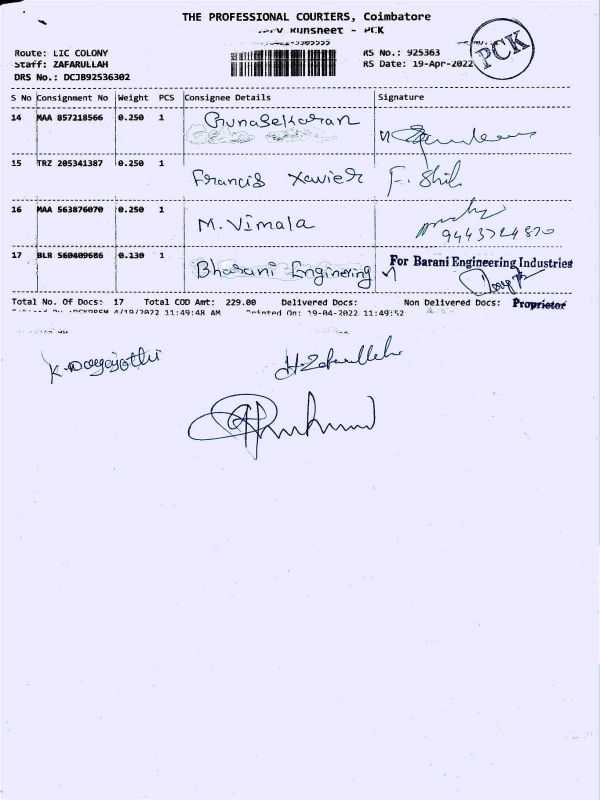 THE PROFESSIONAL COURIERS, Coimbatore
Runsheet - PCK
PCK
Route: LIC COLONY
RS No.: 925363
Staff: ZAFARULLAH
RS Date: 19-Apr-2022
DRS No.: DCJB92536302
S No Consignment No Weight PCS Consignee Details Signature
14 MAA 857218566 0.250 1 Gunasekaran
15 TRZ 205341387 0.250 1 Francis Xavier
16 MAA 563876070 0.250 1 M. Vimala
17 BLR 560409686 0.130 1 Bharani Enginering
For Barani Engineering Industries
Proprietor
Total No. Of Docs: 17 Total COD Amt: 229.00 Delivered Docs: Non Delivered Docs:
4/19/2022 11:49:48 AM Printed On: 19-04-2022 11:49:52